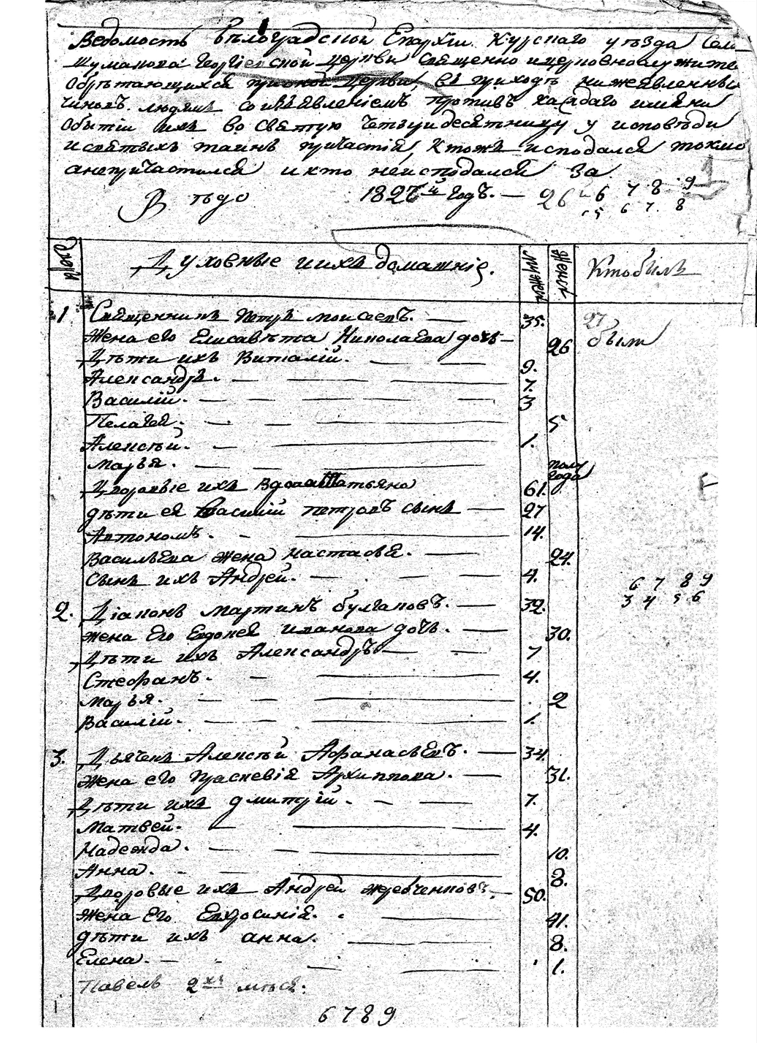 Ведомость Бѣлоградской Епархіи Курскаго уѣзда Села
Шуманова Георгіевской церкви священно и церковнослужите
обрѣтающихся при оной церкви, въ приходѣ нижеявленныхъ
чиновъ людяхъ со изъявленіемъ противъ каждаго имени
о бытіи ихъ во святую четыредесятницу у исповѣди
и святыхъ таинъ причастія, и ктожъ исповѣдался токмо
а не причастился и кто неисповѣдался За
1826й Годъ. — 26 - 6 7 8 9
15 6 7. 8
Духовные и ихъ домашніе. Кто былъ
1 Священникъ Петръ Моисеевъ. — 35. 27
Жена его Елисавѣта Николаева дочь — 26 были
Дѣти ихъ Виталій. — 9.
Александръ. — 7.
Василій. — 3
Пелагея. — 5
Алексѣй. — 1.
Марья. — полу года
Дворовые ихъ вдова Татьяна 61.
дѣти ея Василій Петровъ сынъ — 27
Автономъ. — 14.
Васильева жена Настасья. 24.
Сынъ ихъ Андрей. — 4. 6 7 8 9
3 4 5 6
2. Діаконъ Мартинъ Булгаковъ. — 32.
Жена Его Евдокея Иванова дочь. — 30.
Дѣти ихъ Александръ — 7
Стефанъ. — 4.
Марья. — 2
Василій. — 1.
3. Дьячекъ Алексѣй Афанасьевъ. — 34.
Жена его Прасковія Архиппова. — 31.
Дѣти ихъ Дмитрій. — 7.
Матвей. — 4.
Надежда. — 10.
Анна. — 8.
Дворовые ихъ Андрей — 50.
Жена Его Евфросинія. 41.
дѣти ихъ анна. 8.
Елена. — 1.
Павелъ 2хъ мѣсе.
6789